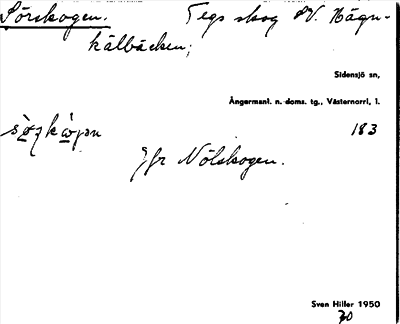 Sörskogen. Tegs skog SV. Hägn-
kälbäcken;
Sidensjö sn,
Ångermanl. n. doms. tg., Västernorrl. l.
183
Jfr Nölskogen.
Sven Hiller 1950